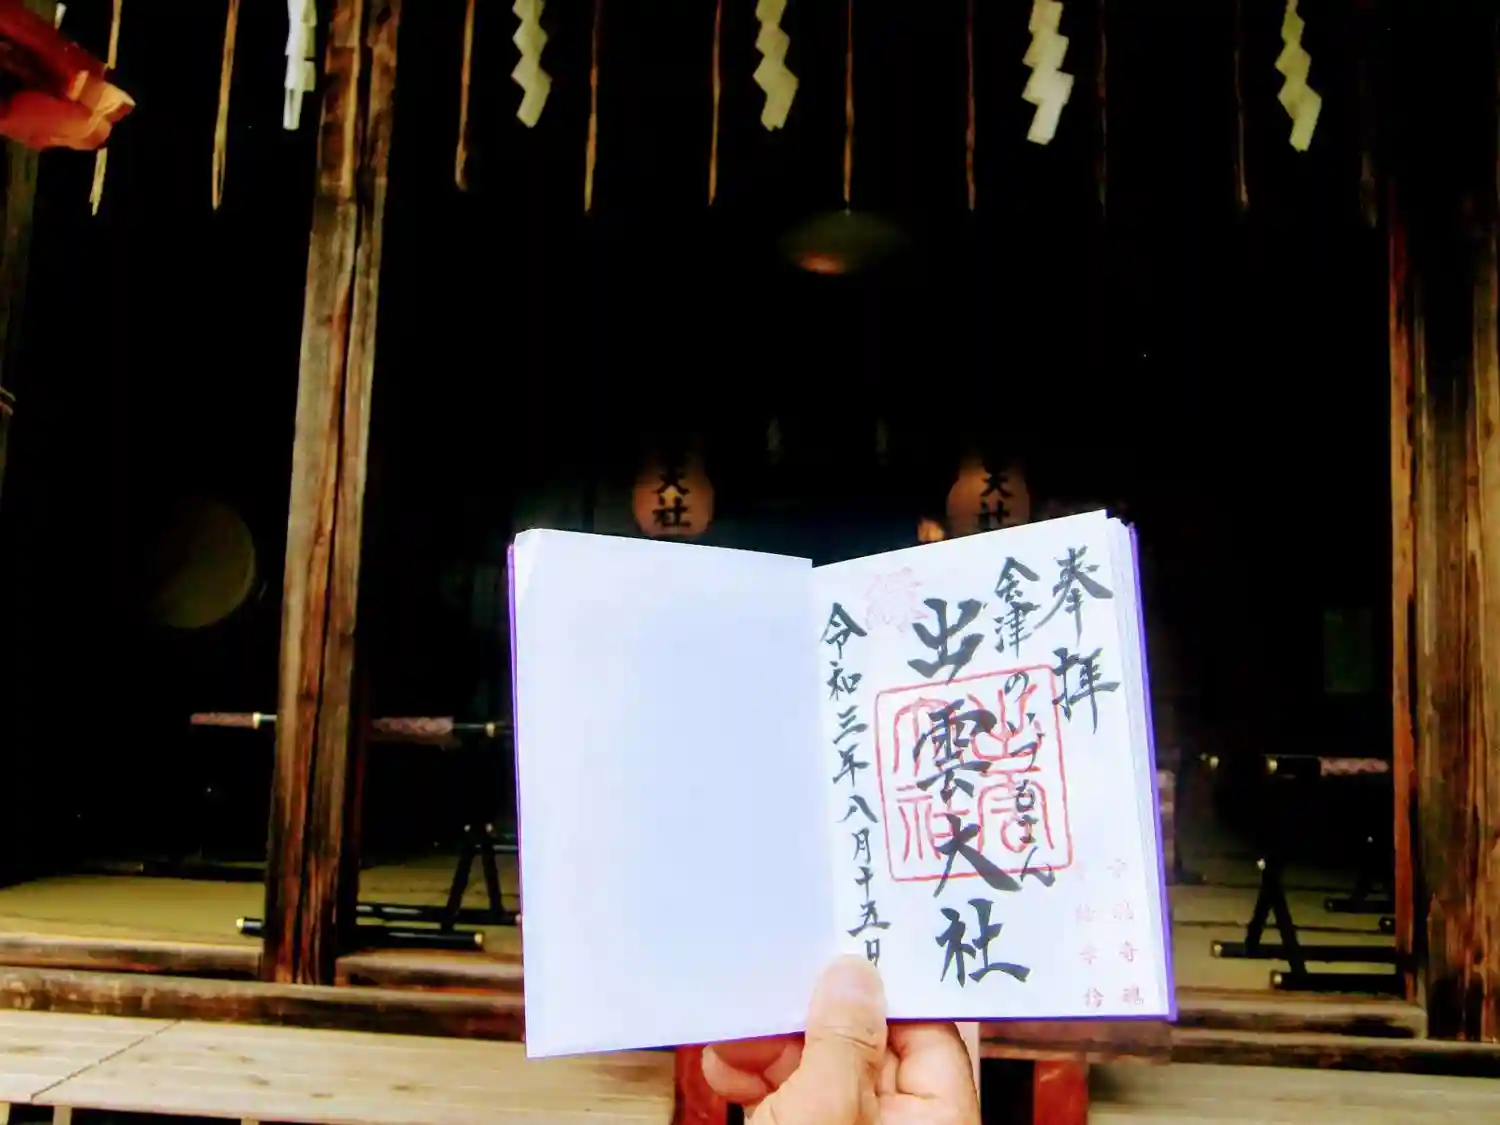 大社
大社
奉拝
会津のいづもさん
出雲大社
出雲
大社
令和三年八月十五日